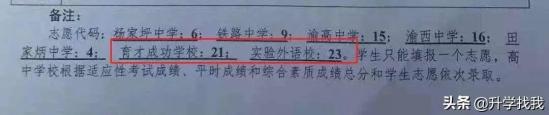 备注:
志愿代码: 杨家坪中学: 6; 铁路中学: 9; 渝高中学: 15; 渝西中学: 16; 田
家炳中学: 4; 育才成功学校: 21; 实验外语校: 23。学生只能填报一个志愿, 高
中学校根据适应性考试成绩、平时成绩和综合素质成绩总分和学生志愿依次录取。
头条 @升学找我